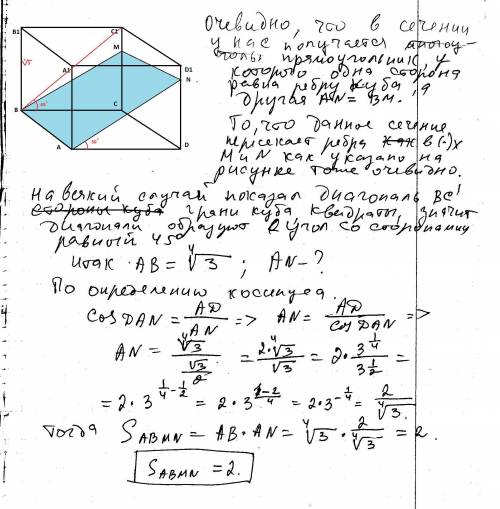 B1
C1
M
A1
D1
N
∜3
B
30°
C
A
30°
D
Очевидно, что в сечении
у нас получается много-
угольн прямоугольник, у
которого одна сторона
равна ребру куба, а
другая AN = BM.
То, что данное сечение
пересекает ребра как в (·)х
M и N как указано на
рисунке тоже очевидно.
На всякий случай показал диагональ BC1
стороны куба грани куба, квадраты, значит
диагонали образуют угол со сторонами
равный 45°
Итак AB = ∜3 ; AN - ?
По определению косинуса.
cos DAN = AD/AN => AN = AD/cos DAN =>
AN = ∜3/(√3/2) = 2·∜3/√3 = 2·3^(1/4)/3^(1/2) =
= 2·3^(1/4 - 1/2) = 2·3^((1-2)/4) = 2·3^(-1/4) = 2/∜3.
Тогда S_ABMN = AB·AN = ∜3 · 2/∜3 = 2.
S_ABMN = 2.